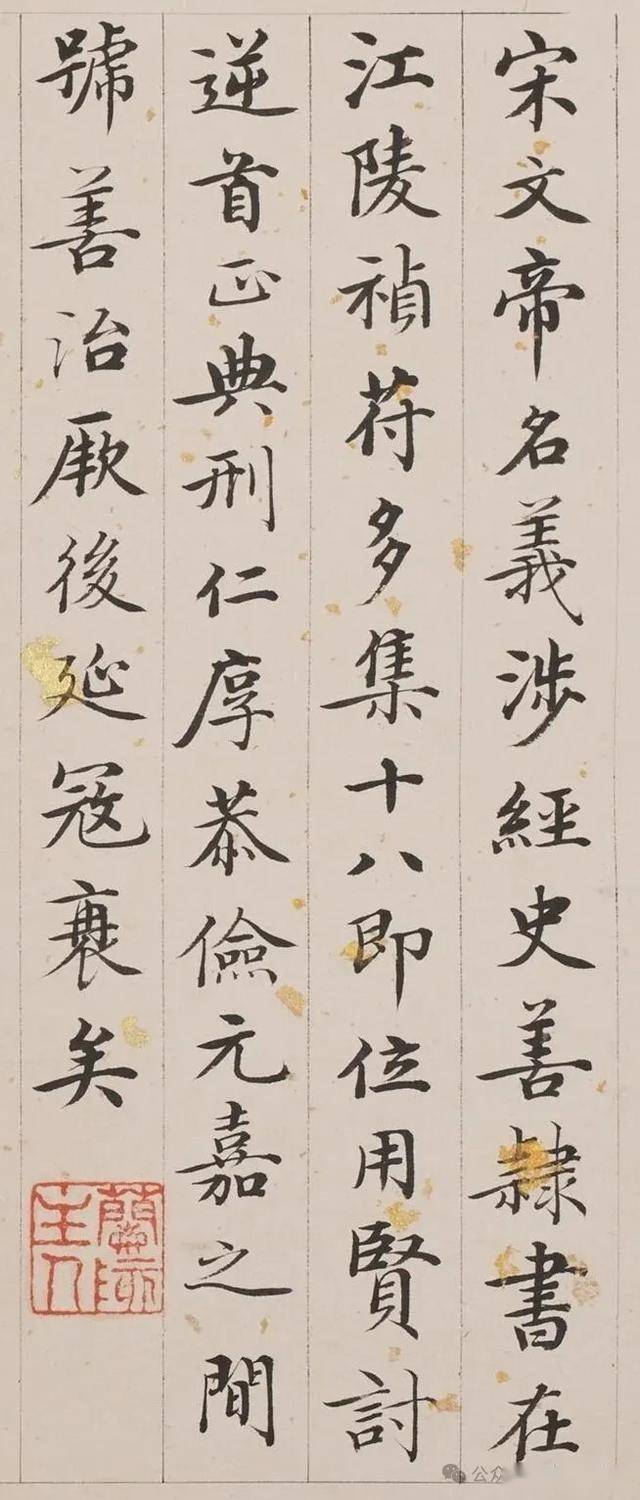 宋文帝名義涉經史善隸書在
江陵禎苻多集十八即位用賢討
逆首正典刑仁厚恭儉元嘉之間
號善治厥後延冦衰矣
主人
公众